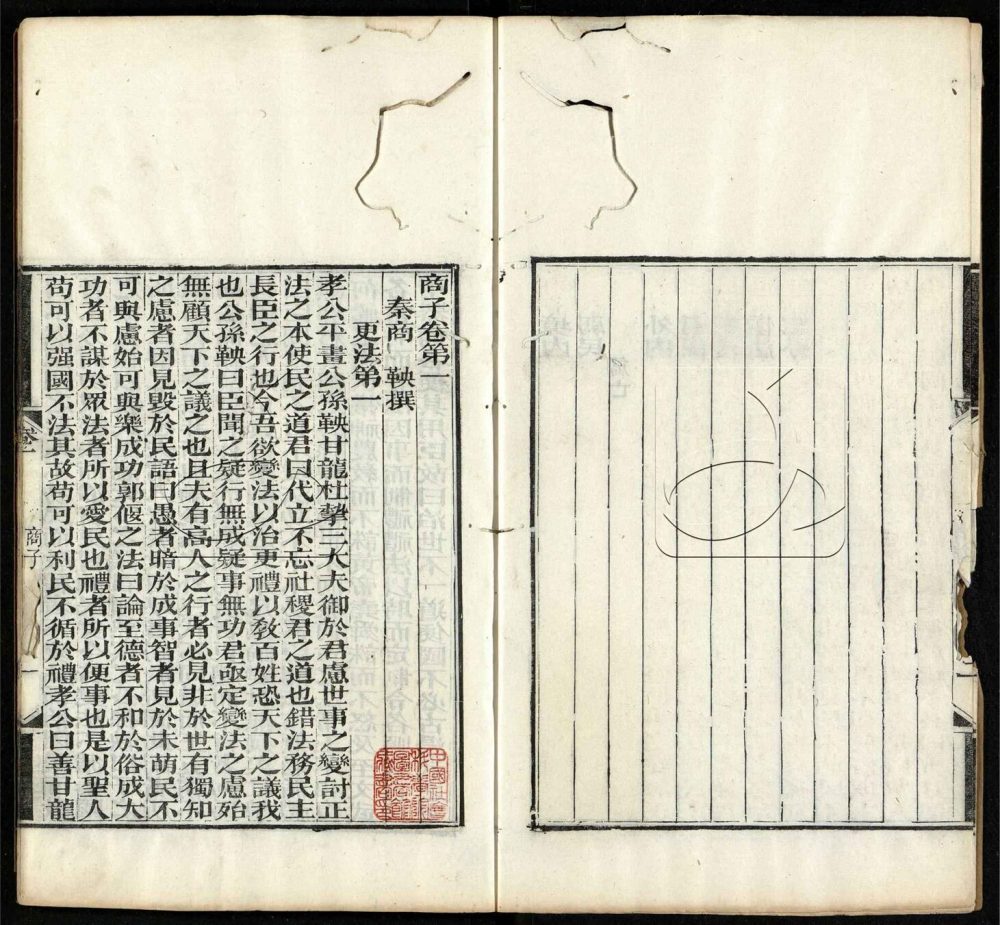 商子卷第一
秦商鞅撰
更法第一
孝公平畫公孫鞅甘龍杜摯三大夫御於君慮世事之變討正
法之本使民之道君曰代立不忘社稷君之道也錯法務民主
長臣之行也今吾欲變法以治更禮以敎百姓恐天下之議我
也公孫鞅曰臣聞之疑行無成疑事無功君亟定變法之慮殆
無顧天下之議之也且夫有高人之行者必見非於世有獨知
之慮者因見毀於民語曰愚者暗於成事智者見於未萌民不
可與慮始可與樂成功郭偃之法曰論至德者不和於俗成大
功者不謀於眾法者所以愛民也禮者所以便事也是以聖人
苟可以强國不法其故苟可以利民不循於禮孝公曰善甘龍
卷一
商子
一